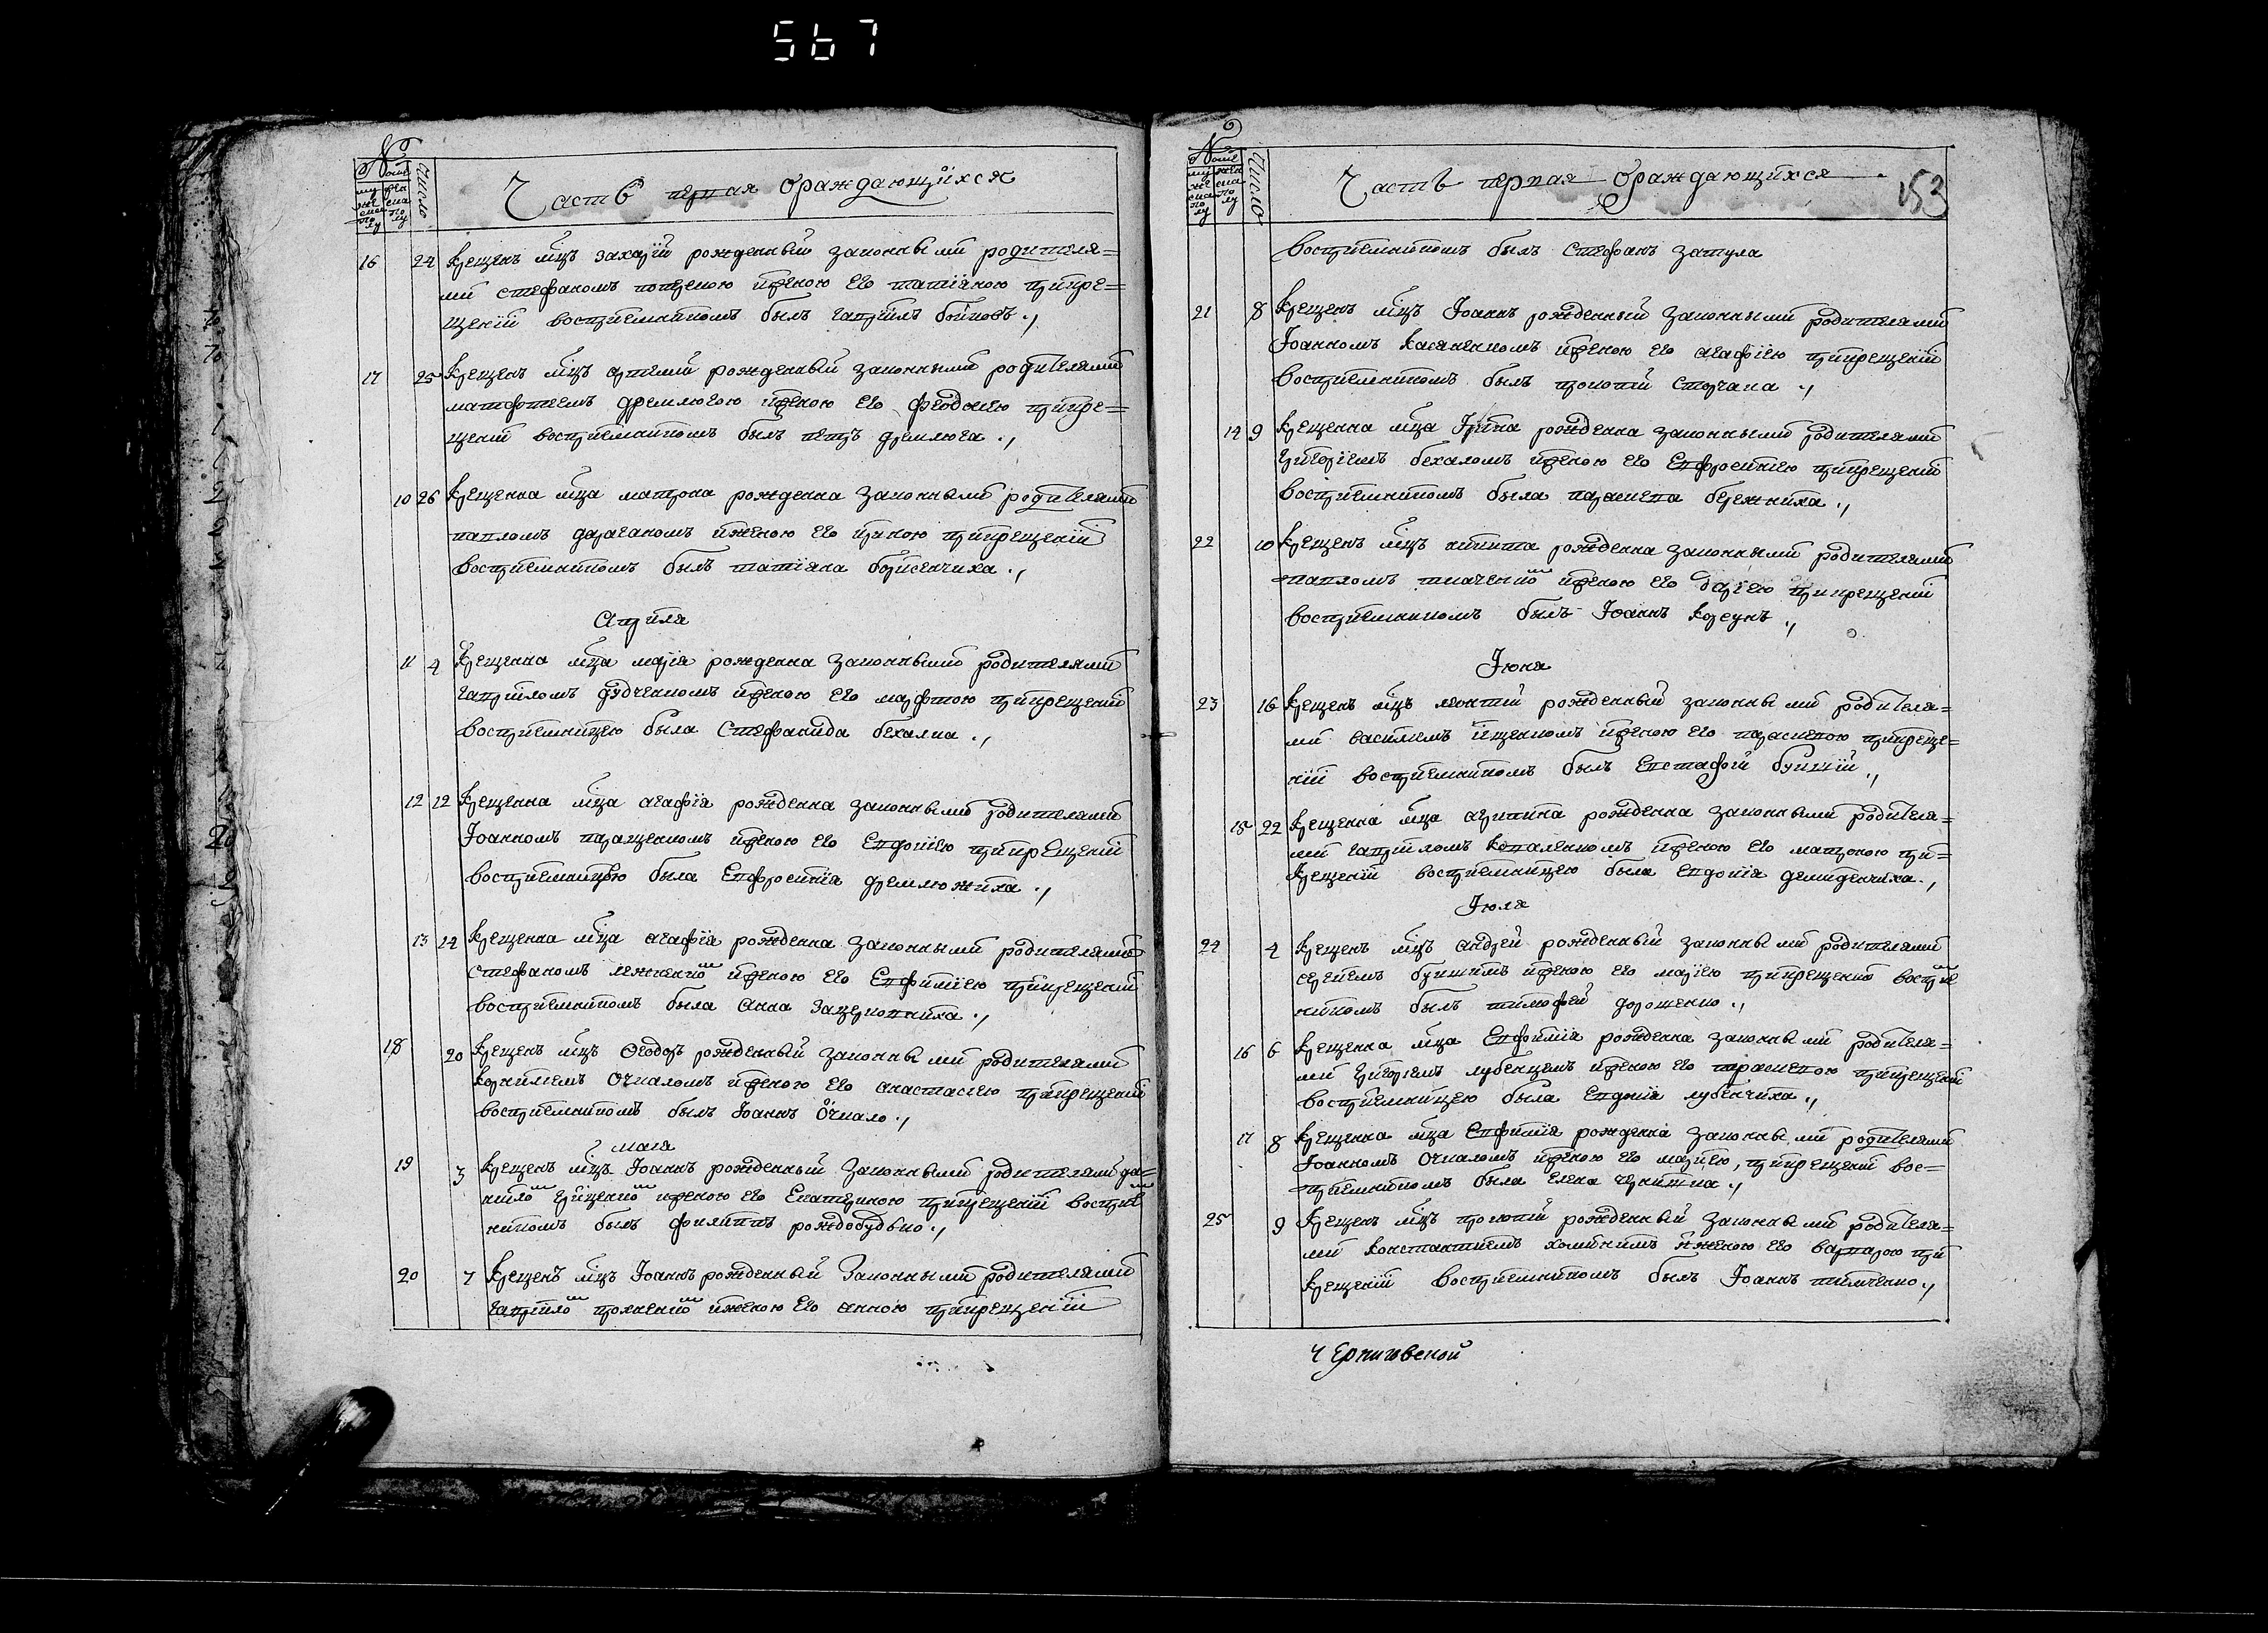 567
№
муже
ска по
лу
жен
ска
по
лу
число
Часть первая ораждающихся
16 24 Крещенъ мцъ захарій рожденный законными родителя=
ми стефаномъ иженою его татіяною прикре=
щеніи воспріемникомъ былъ гавріилъ бойковъ .,
17 25 Крещенъ мцъ артемій рожденный законными родителями
матфтеемъ дремлюгою иженою его феодосіею прикре=
щеніи воспріемникомъ былъ петръ дремлюга .,
10 26 Крещенна мца матрона рожденна законными родителями
павломъ дараганомъ иженою его ириною прикрещеніи
воспріемникомъ былъ татіяна борисенчиха .,
Априля
11 4 Крещенна мца марія рожденна законными родителями
гавріиломъ дудченкомъ иженою его марфтою прикрещеніи
воспріемницею была Стефанида бехалка .,
12 12 Крещенна мца агафія рожденна законными родителями
Іоанномъ паращенкомъ иженою его Евдокіею прикрещеніи
воспріемницею была Евфросинія дремлюжиха .,
13 14 Крещенна мца агафія рожденна законными родителями
стефаномъ иженою его Евфиміею прикрещеніи
воспріемникомъ была Анна .,
18 20 Крещенъ мцъ Феодоръ рожденный законными родителями
корниліемъ Очкаломъ иженою его анастасіею прикрещеніи
воспріемникомъ былъ Іоаннъ Очкало .,
маія
19 3 Крещенъ мцъ Іоаннъ рожденный законными родителями да=
нило грищенко иженою его Екатериною прикрещеніи воспріе
никомъ былъ филиппъ рождобудько .,
20 7 Крещенъ мцъ Іоаннъ рожденный законными родителями
гавріило иженою его анною прикрещеніи
№
муже
ска
по
лу
жен
ска
по
лу
Число
Часть первая ораждающихся
153
воспріемникомъ былъ Стефанъ затула
21 8 Крещенъ мцъ Іоаннъ рожденный законными родителями
Іоанномъ Касяненкомъ иженою его агафіею прикрещеніи
воспріемникомъ былъ прокопій .,
14 9 Крещенна мца Ірина рожденна законными родителями
григоріемъ бехаломъ иженою его Евфросиніею прикрещеніи
воспріемникомъ была параскева бережниха .,
22 10 Крещенъ мцъ никита рожденна законными родителями
павломъ ткаченко иженою его даріею прикрещеніи
воспріемникомъ былъ Іоаннъ Корсунъ .,
Іюня
23 16 Крещенъ мцъ леонтій рожденный законными родителя=
ми василіемъ іщенкомъ иженою его параскевою прикреще=
ніи воспріемникомъ былъ Евстафій .,
15 22 Крещенна мца агрипина рожденна законными родителя=
ми гавріиломъ Коваленкомъ иженою его матроною при=
крещеніи воспріемницею была Евдокія демиденчиха .,
Іюля
24 4 Крещенъ мцъ андрей рожденный законными родителями
сергіемъ иженою его маріею прикрещеніи воспріе
никомъ былъ тимофей дорошенко .,
16 6 Крещенна мца Евфимія рожденна законными родителя=
ми григоріемъ лубенцемъ иженою его параскевою прикрещеніи
воспріемницею была Евдокія лубенчиха .,
17 8 Крещенна мца Евфимія рожденна законными родителями
Іоанномъ Очкаломъ иженою его маріею, прикрещеніи вос=
пріемникомъ была Елена .,
25 9 Крещенъ мцъ прокопій рожденный законными родителя=
ми константіемъ иженою его варварою при
крещеніи воспріемникомъ былъ Іоаннъ тимченко .,
Черниговской